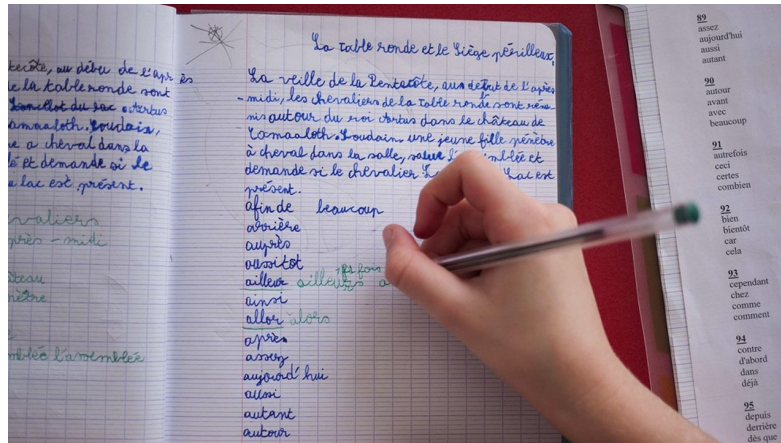 tecôte, au début de l'après
de la table ronde sont
Lancelot du lac Artus
Soudain,
e a cheval dans la
é et demande si le
lac est présent.
valiers
près-midi
teau
nètre
mblée l'assemblée
La table ronde et le Siège périlleux,
La veille de la Pentecôte, au début de l'après
-midi, les chevaliers de la table ronde sont réu
nis autour du roi Artus dans le château de
Camaaloth. Soudain une jeune fille pénètre
à cheval dans la salle, salue et
demande si le chevalier Lac est
présent.
afin de beaucoup
arrière
auprès
aussitot
ailleur ailleurs
ainsi
allor alors
après
assez
aujourd'hui
aussi
autant
autour
89
assez
aujourd'hui
aussi
autant
90
autour
avant
avec
beaucoup
91
autrefois
ceci
certes
combien
92
bien
bientôt
car
cela
93
cependant
chez
comme
comment
94
contre
d'abord
dans
déjà
95
depuis
derrière
dès que